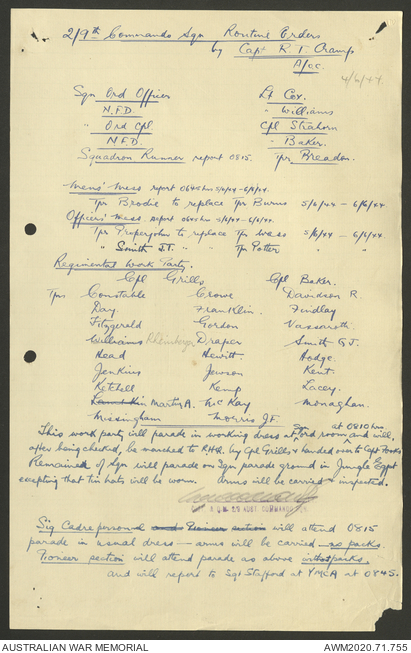 2/9th Commando Sqn Routine Orders
by Capt R. T. Cramp
A/oc.
4/6/44
Sqn Ord Officer Lt Cox.
N.F.D. " Williams
" Ord Cpl Cpl Strahorn
N.F.D. " Baker.
Squadron Runner report 0815. Tpr Breadon.
Mens' Mess report 0645 hrs 5/6/44 - 6/6/44.
Tpr Brodie to replace Tpr Burns 5/6/44 - 6/6/44
Officers' Mess report 0645 hrs 5/6/44 - 6/6/44.
Tpr to replace Tpr Wess 5/6/44 - 6/6/44
" Smith J.T. " " Tpr Potter
Regimental Work Party.
Cpl Grills Cpl Baker.
Tprs Constable Crowe Davidson R.
Day Franklin. Findlay
Fitzgerald Gordon Vassarotti
Williams Draper Smith G.J.
Head Hewitt. Hodge.
Jenkins Jewson Kent.
Ketchell Kemp Lacey.
Martyn A. McKay Monaghan.
Missingham Morris J.F.
This work party will parade in working dress at Ord room at 0810 hrs and will,
after being checked, be marched to R.H.Q. by Cpl Grills & handed over to Capt
Remainder of Sqn will parade on Sqn parade ground in Jungle Eqpt
excepting that tin hats will be worn. arms will be carried & inspected.
CAPT
Sig Cadre personnel and Pioneer section will attend 0815
parade in usual dress — arms will be carried no packs.
Pioneer section will attend parade as above without packs.
and will report to Sgt Stafford at YMCA at 0845.
AUSTRALIAN WAR MEMORIAL AWM2020.71.755